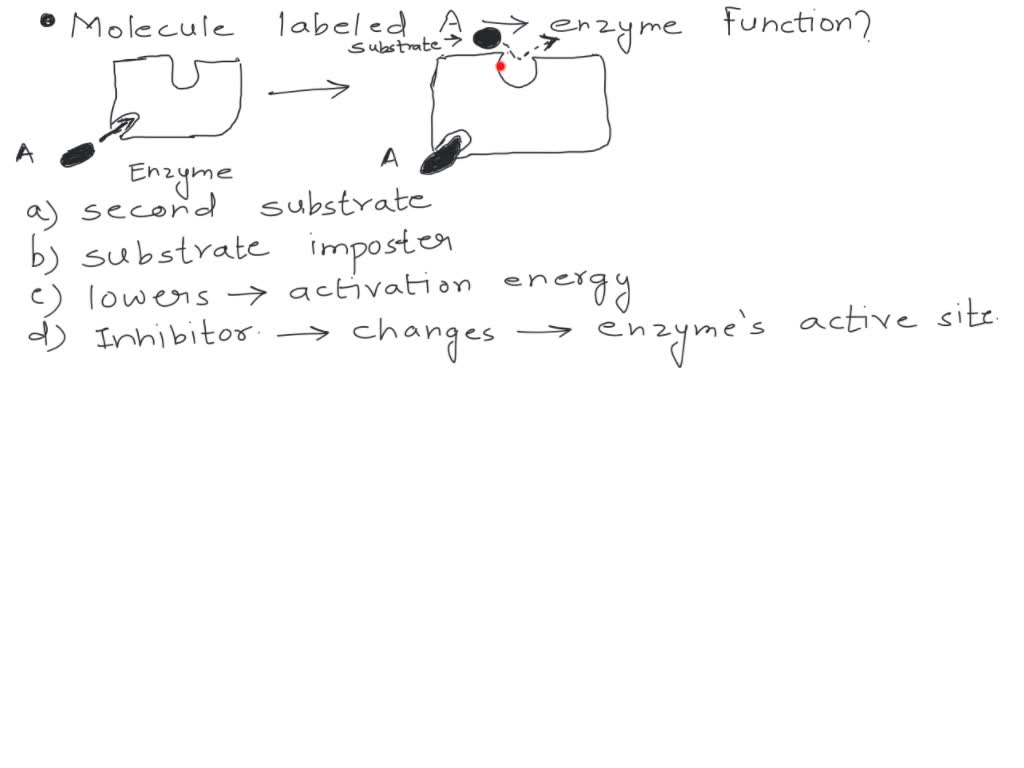 • Molecule labeled A → enzyme function?
substrate →
A
Enzyme
A
a) second substrate
b) substrate imposter
c) lowers → activation energy
d) Inhibitor → changes → enzyme's active site.